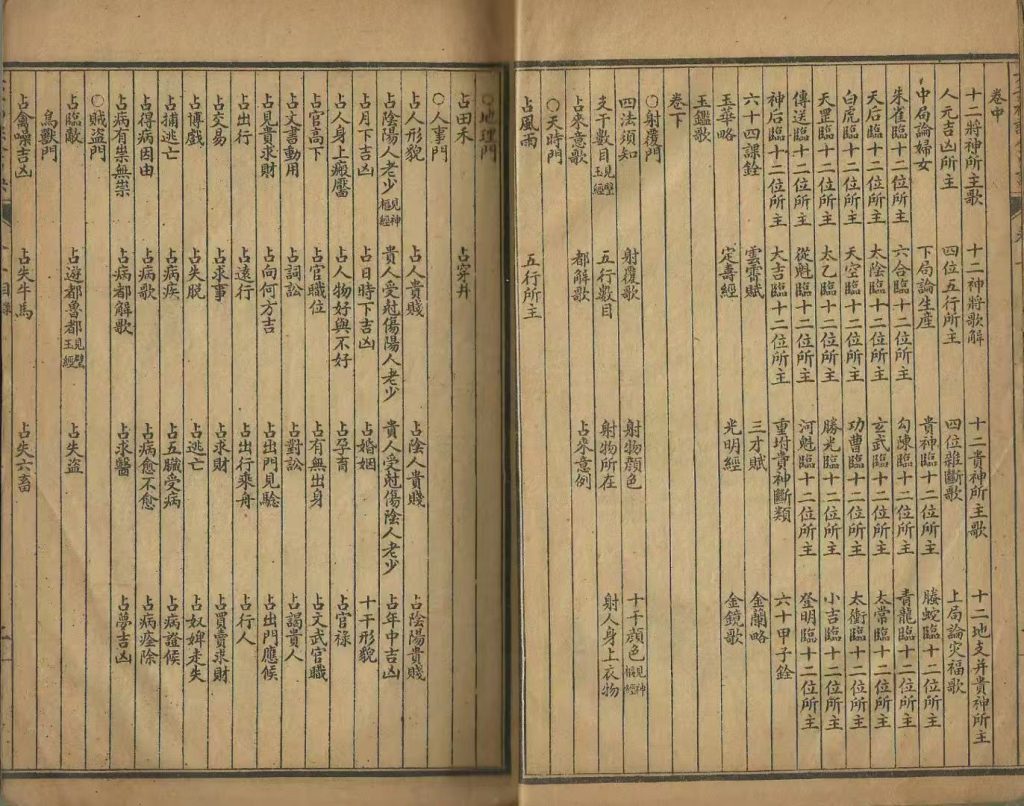 卷中
十二將神所主歌 十二神將歌解 十二貴神所主歌 十二地支并貴神所主
人元吉凶所主 四位五行所主 四位雜斷歌 上局論灾福歌
中局論婦女 下局論生産 貴神臨十二位所主 螣蛇臨十二位所主
朱雀臨十二位所主 六合臨十二位所主 勾陳臨十二位所主 青龍臨十二位所主
天后臨十二位所主 太陰臨十二位所主 玄武臨十二位所主 太常臨十二位所主
白虎臨十二位所主 天空臨十二位所主 功曹臨十二位所主 太衝臨十二位所主
天罡臨十二位所主 太乙臨十二位所主 勝光臨十二位所主 小吉臨十二位所主
傳送臨十二位所主 從魁臨十二位所主 河魁臨十二位所主 登明臨十二位所主
神后臨十二位所主 大吉臨十二位所主 重坿貴神斷類 六十甲子銓
六十四課銓 雲霄賦 三才賦 金蘭略
玉華略 定壽經 光明經 金鏡歌
玉鑑歌
卷下
○射覆門
四法須知 射覆歌 射物顔色 十干顔色見神樞經
支干數目見璧玉經 五行數目 射物所在 射人身上衣物
占來意歌 都解歌 占來意例
○天時門
占風雨 五行所主
○地理門
占田禾 占穿井
○人事門
占人形貌 占人貴賤 占陰人貴賤 占陰陽貴賤
占陰陽人老少見神樞經 貴人受尅傷陽人老少 貴人受尅傷陰人老少 占年中吉凶
占月下吉凶 占日時下吉凶 占婚姻 十干形貌
占人身上瘢黶 占人物好與不好 占孕育 占官祿
占官高下 占官職位 占有無出身 占文武官職
占文書動用 占詞訟 占對訟 占謁貴人
占見貴求財 占向何方吉 占出門見驗 占出門應候
占出行 占遠行 占出行乘舟 占行人
占交易 占求事 占求財 占買賣求財
占博戲 占失脱 占逃亡 占奴婢走失
占捕逃亡 占病疾 占五臟受病 占病證候
占得病因由 占病歌 占病愈不愈 占病痊除
占病有祟無祟 占病都解歌 占求醫 占夢吉凶
○賊盗門
占臨敵 占遊都魯都見璧玉經 占失盗
鳥獸門
占禽噪吉凶 占失牛馬 占失六畜